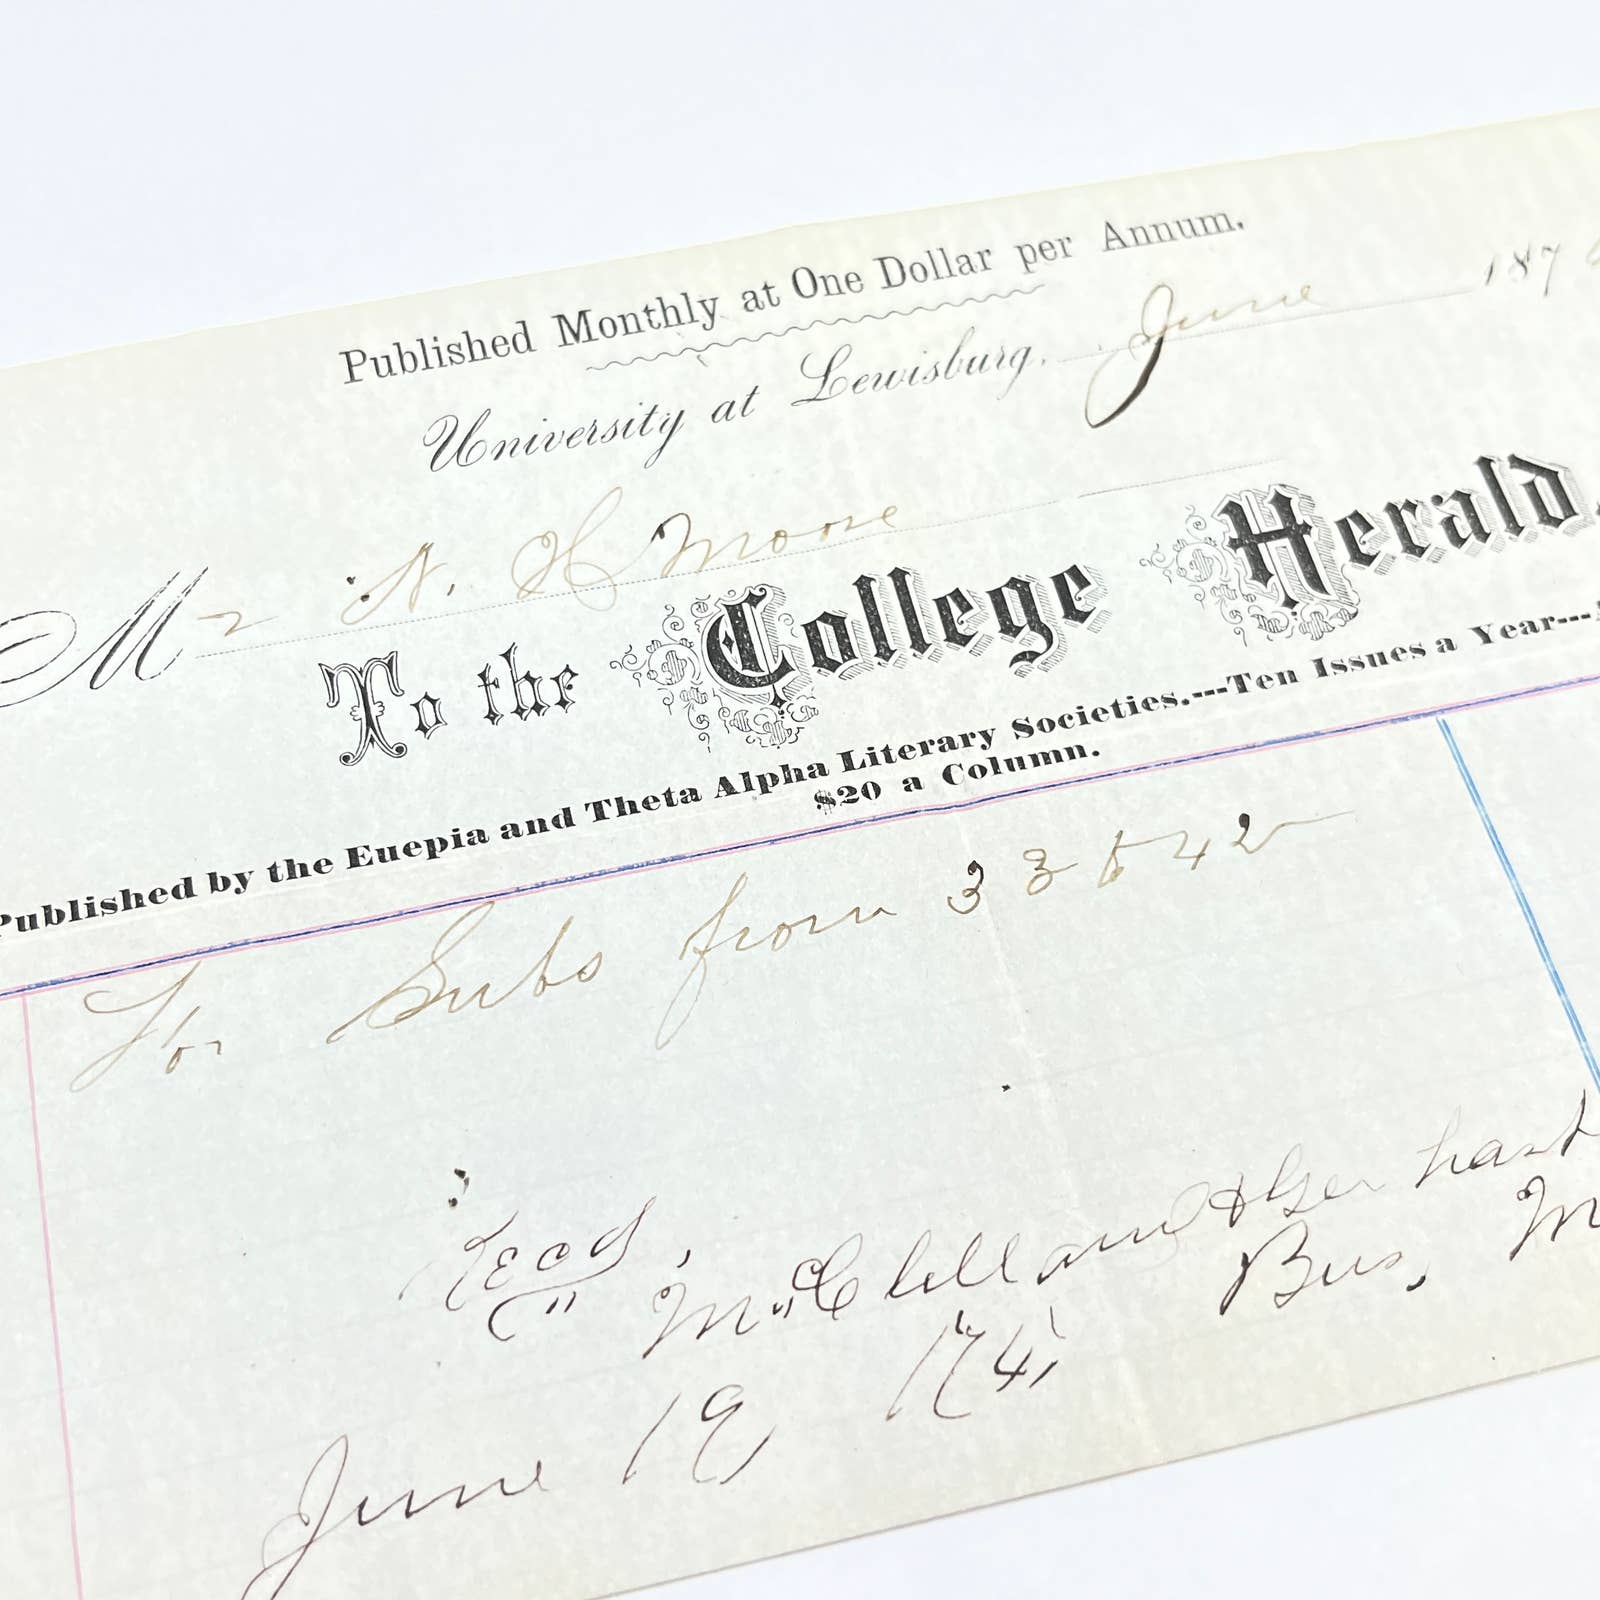 Published Monthly at One Dollar per Annum.
University at Lewisburg, June 187
Mr H Moore
To the College Herald,
Published by the Euepia and Theta Alpha Literary Societies.---Ten Issues a Year---
$20 a Column.
For Subs from 33 to 42
Recd,
McClelland &
Bus. M
June 19 '74,